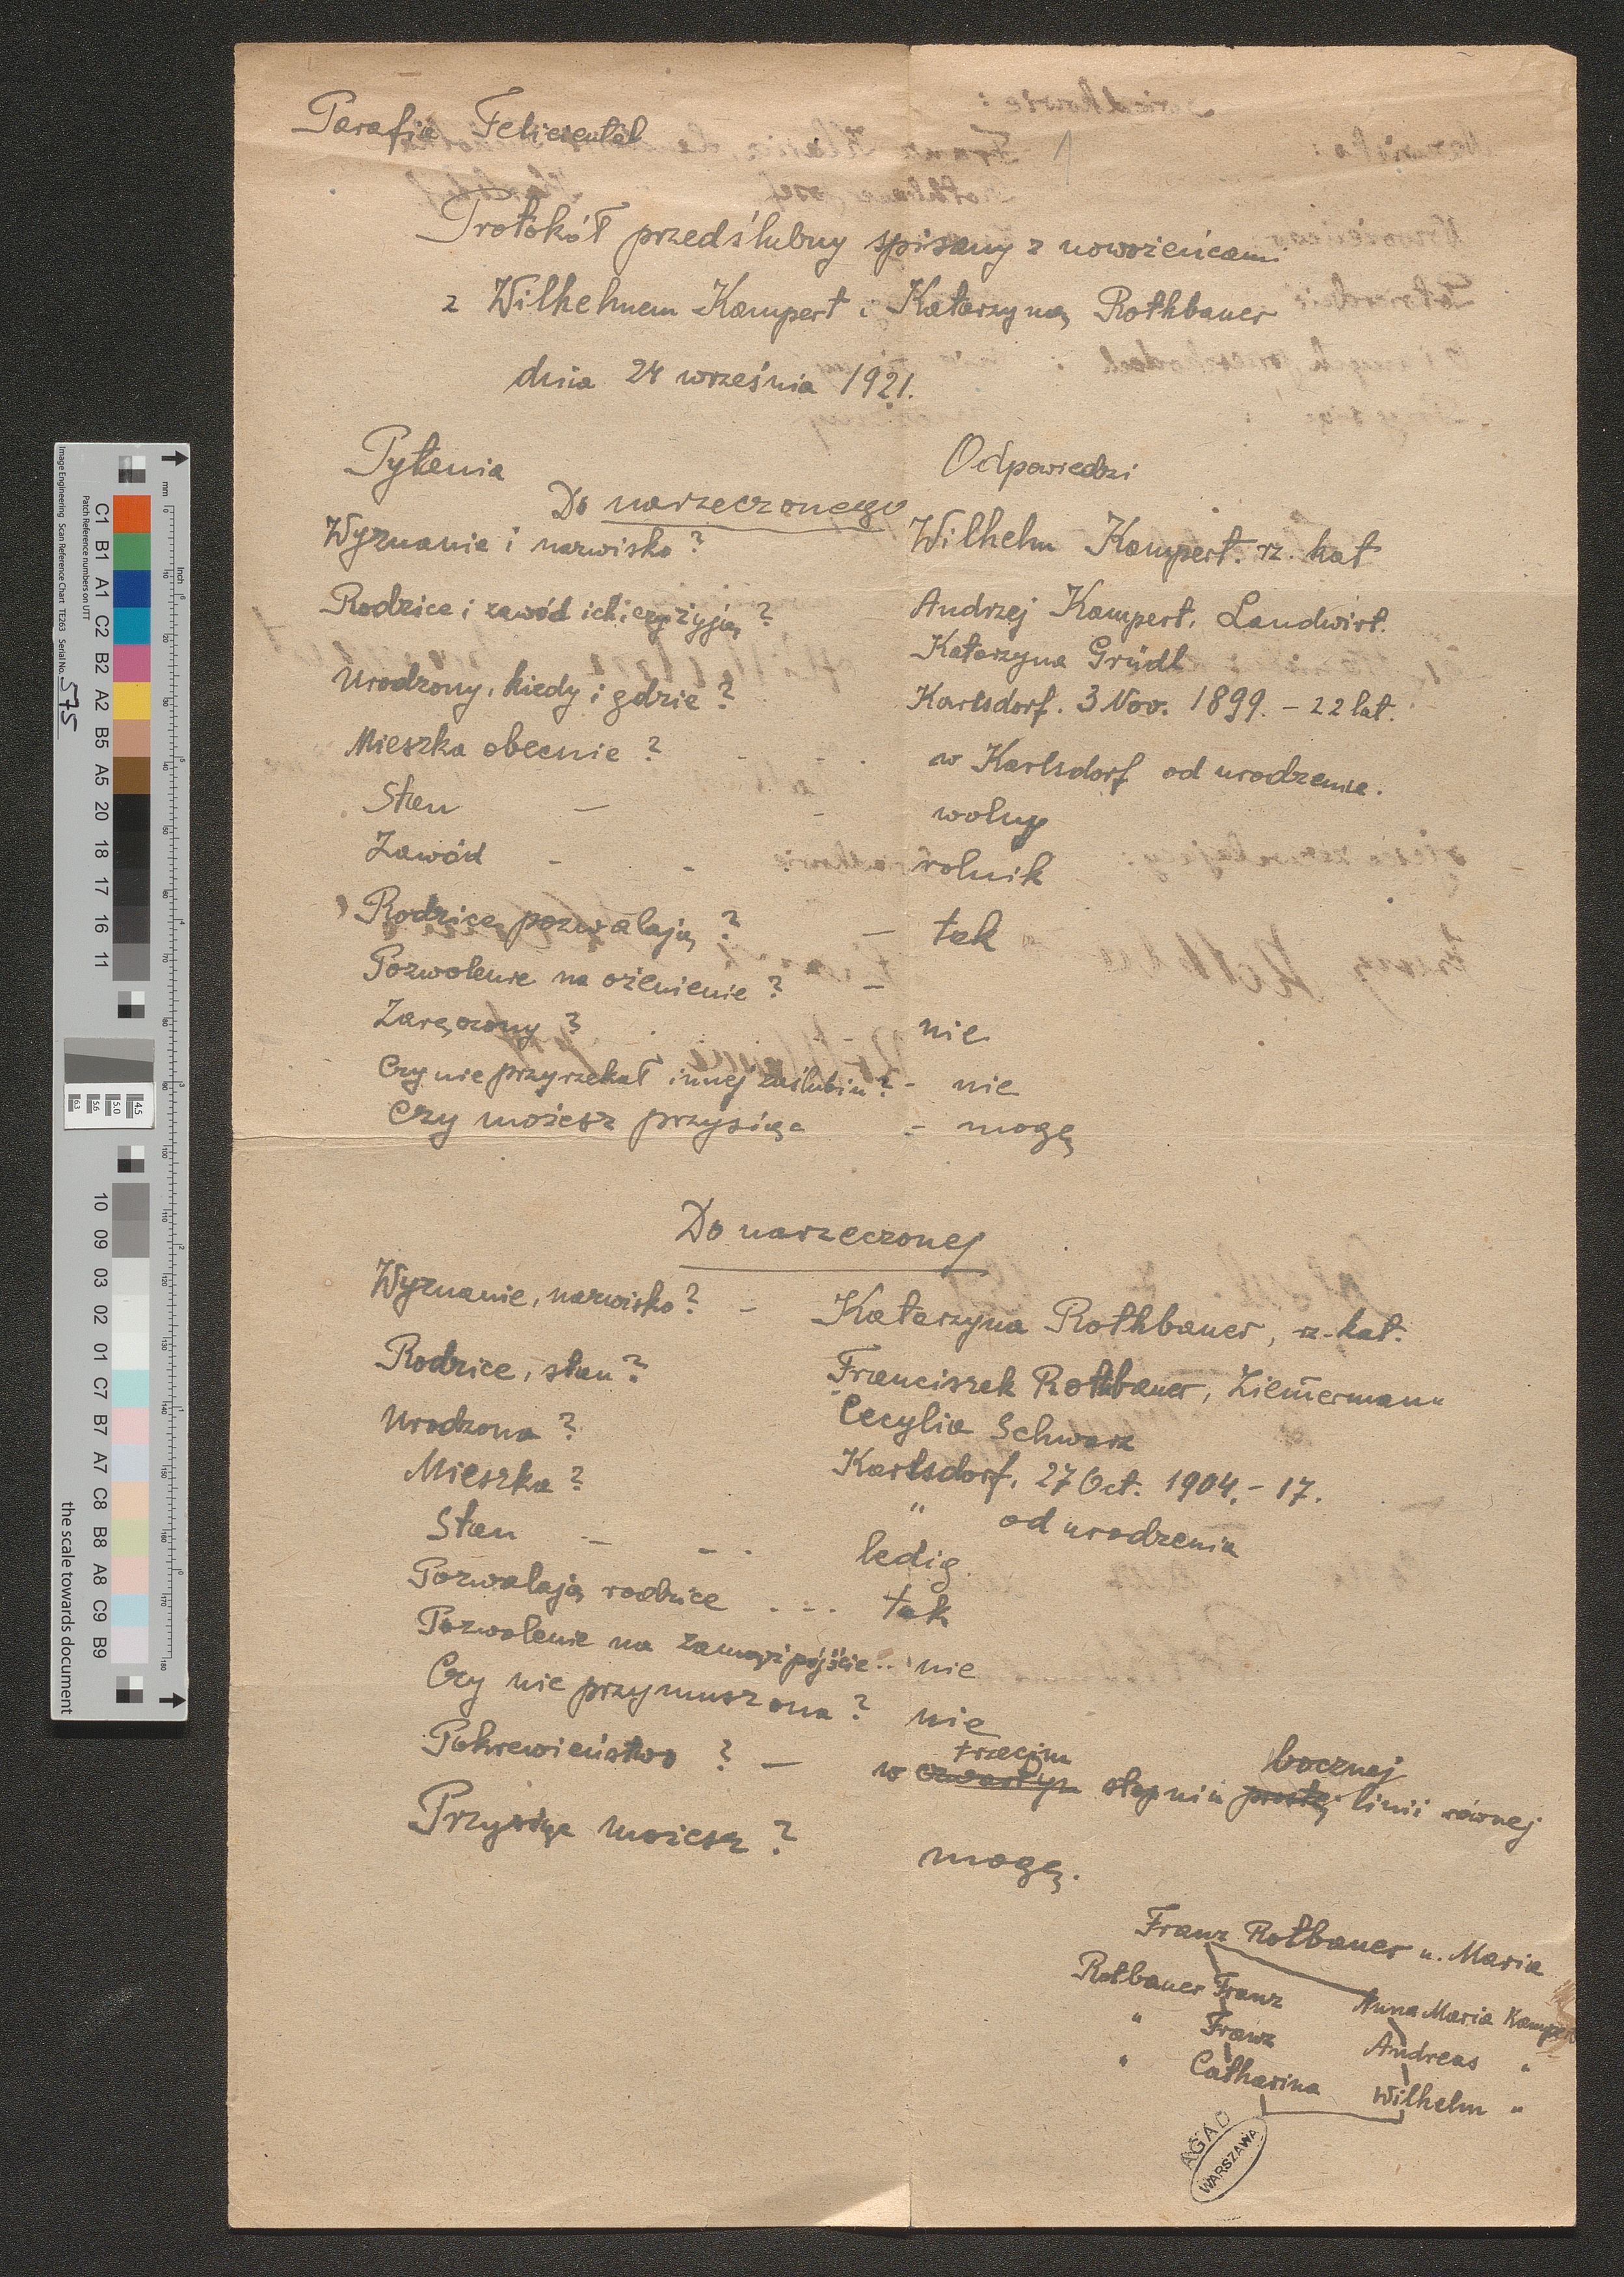 Parafia Felizental
1
Protokół przedślubny spisany z nowożeńcami
z Wilhelmem Kampert i Katarzyną Rothbauer
dnia 24 września 1921.
Pytania Odpowiedzi
Do narzeczonego
Wyznanie i nazwisko? Wilhelm Kampert. rz. kat
Rodzice i zawód ich i czy żyją? Andrzej Kampert, Landwirt.
Katarzyna Gründl
Urodzony, kiedy i gdzie? Karlsdorf. 3 Nov. 1899. - 22 lat.
Mieszka obecnie? - - . w Karlsdorf od urodzenia.
Stan - - wolny
Zawód - - . rolnik
Rodzice pozwalają? - tak
Pozwolenie na ożenienie? -
Zaręczony? . . - nie
Czy nie przyrzekał innej zaślubin? - nie
Czy możesz przysiąc - mogę
Do narzeczonej
Wyznanie, nazwisko? - Katarzyna Rothbauer, rz. kat.
Rodzice, stan? Franciszek Rothbauer, Ziem̄ermann
Cecylia Schwarz
Urodzona? Karlsdorf, 27 Oct. 1904. - 17.
Mieszka? " od urodzenia
Stan - - . ledig.
Pozwalają rodzice . . . tak
Pozwolenie na zamążpójście .. nie
Czy nie przymuszona? nie
trzecim bocznej
Pokrewieństwo? - w czwartym stopniu prostej linii równej
Przysiąc możesz? mogę.
Franz Rotbauer u. Maria
Rotbauer Franz Anna Maria Kampert
" Franz Andreas "
" Catharina Wilhelm "
AGAD
WARSZAWA
Image Engineering Scan Reference Chart TE263 Serial No. 575
Patch Reference numbers on UTT
C1 B1 A1 C2 B2 A2 B5 A5 20 18 17 16 11
10 09 03 02 01 C7 B7 A7 C8 B8 A8 C9 B9
mm
inch
4.5 5.0 5.6 6.3
the scale towards document